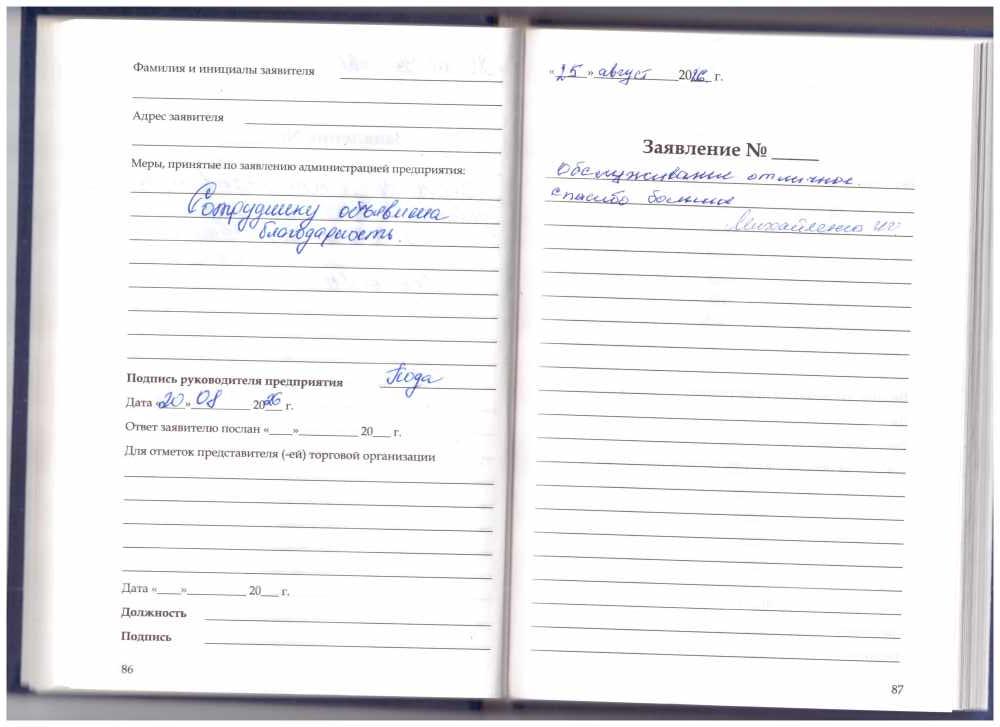 Фамилия и инициалы заявителя
Адрес заявителя
Меры, принятые по заявлению администрацией предприятия:
Сотруднику объявлена
благодарность.
Подпись руководителя предприятия
Дата «20» 08 2026 г.
Ответ заявителю послан «____»__________ 20___ г.
Для отметок представителя (-ей) торговой организации
Дата «____»__________ 20___ г.
Должность
Подпись
86
«15» август 20 г.
Заявление № ____
Обслуживание отличное.
Спасибо большое
Михайленко
87